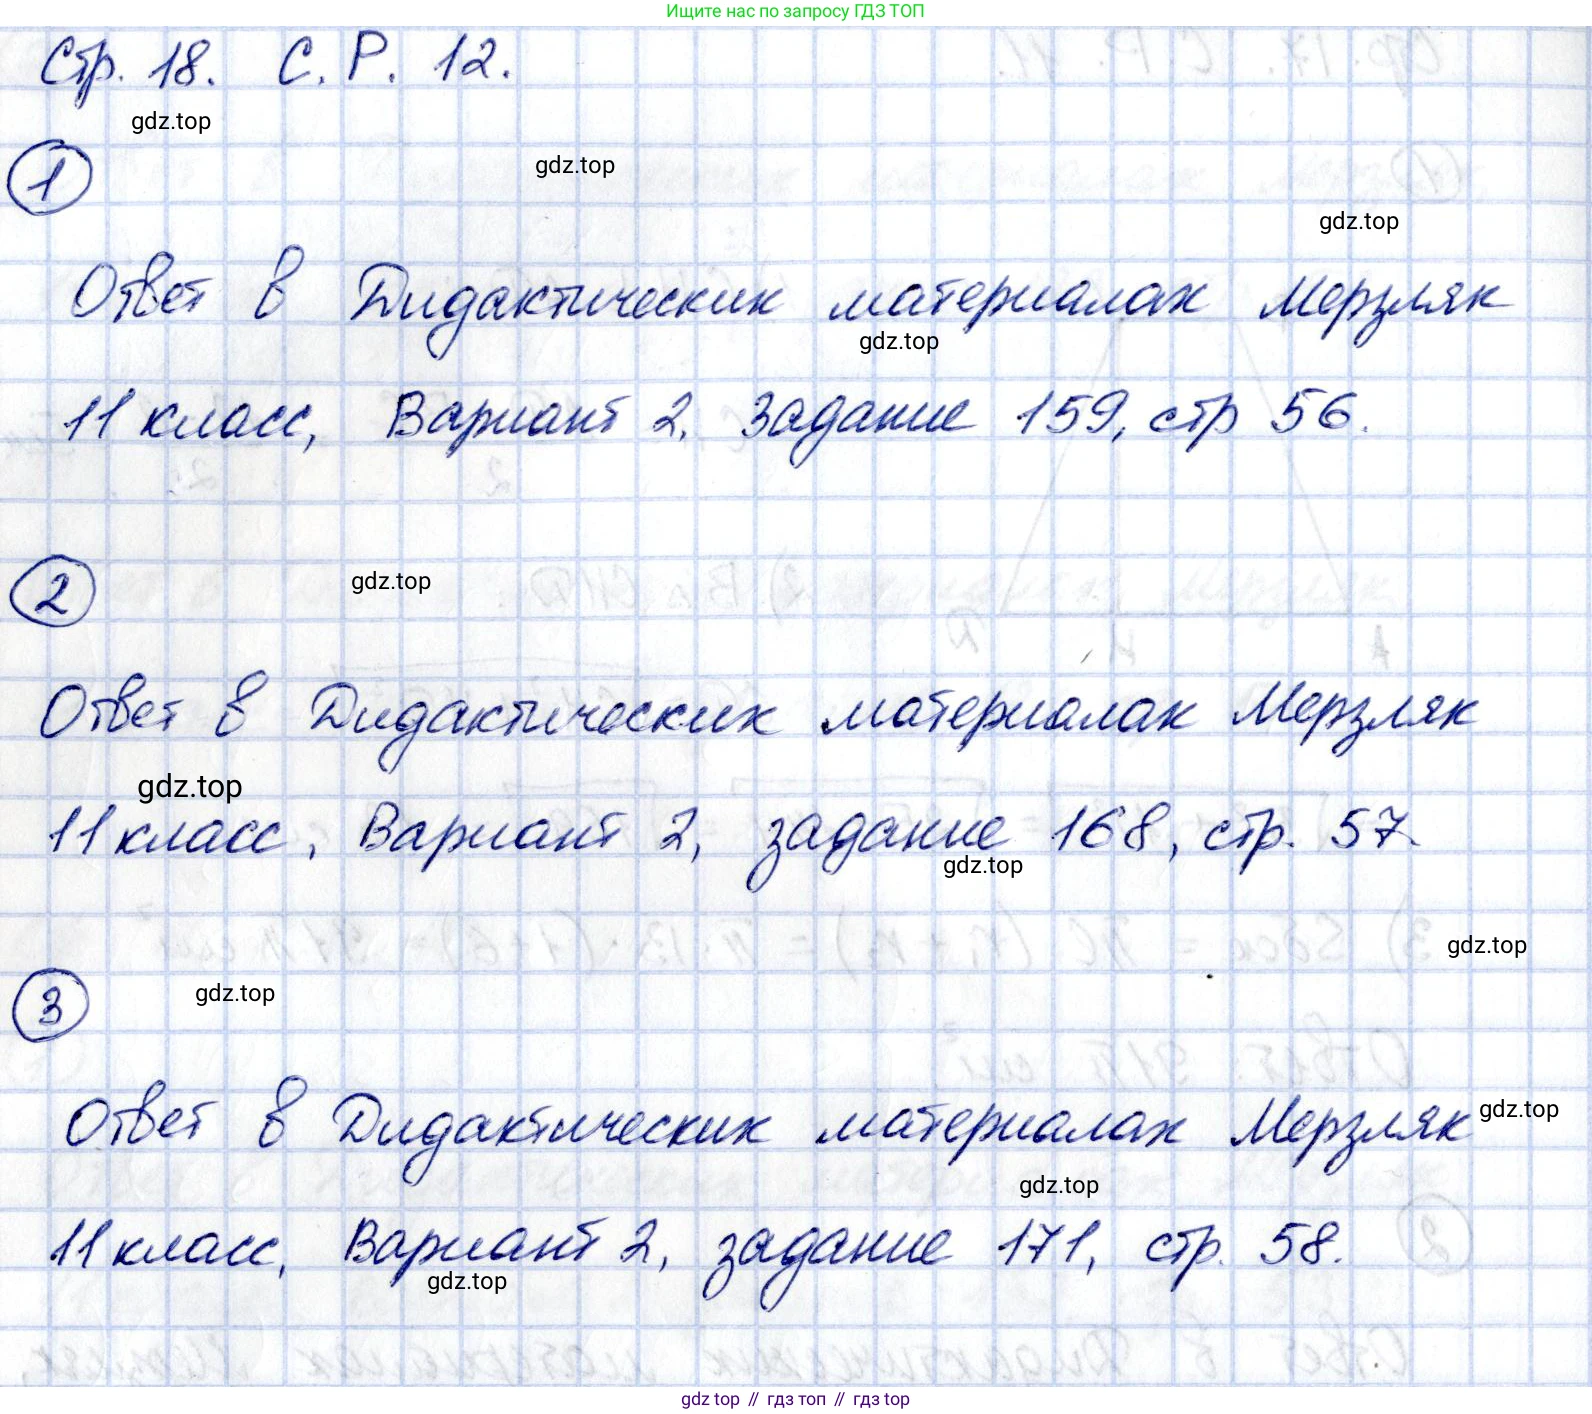 Ищите нас по запросу ГДЗ ТОП
Стр. 18. С. Р. 12.
gdz.top
1
gdz.top
gdz.top
Ответ в Дидактических материалах Мерзляк
gdz.top
11 класс, Вариант 2, задание 159, стр 56.
2
gdz.top
Ответ в Дидактических материалах Мерзляк
gdz.top
11 класс, Вариант 2, задание 168, стр. 57.
gdz.top
gdz.top
3
gdz.top
Ответ в Дидактических материалах Мерзляк
gdz.top
gdz.top
11 класс, Вариант 2, задание 171, стр. 58.
gdz.top
gdz top // гдз топ // гдз top